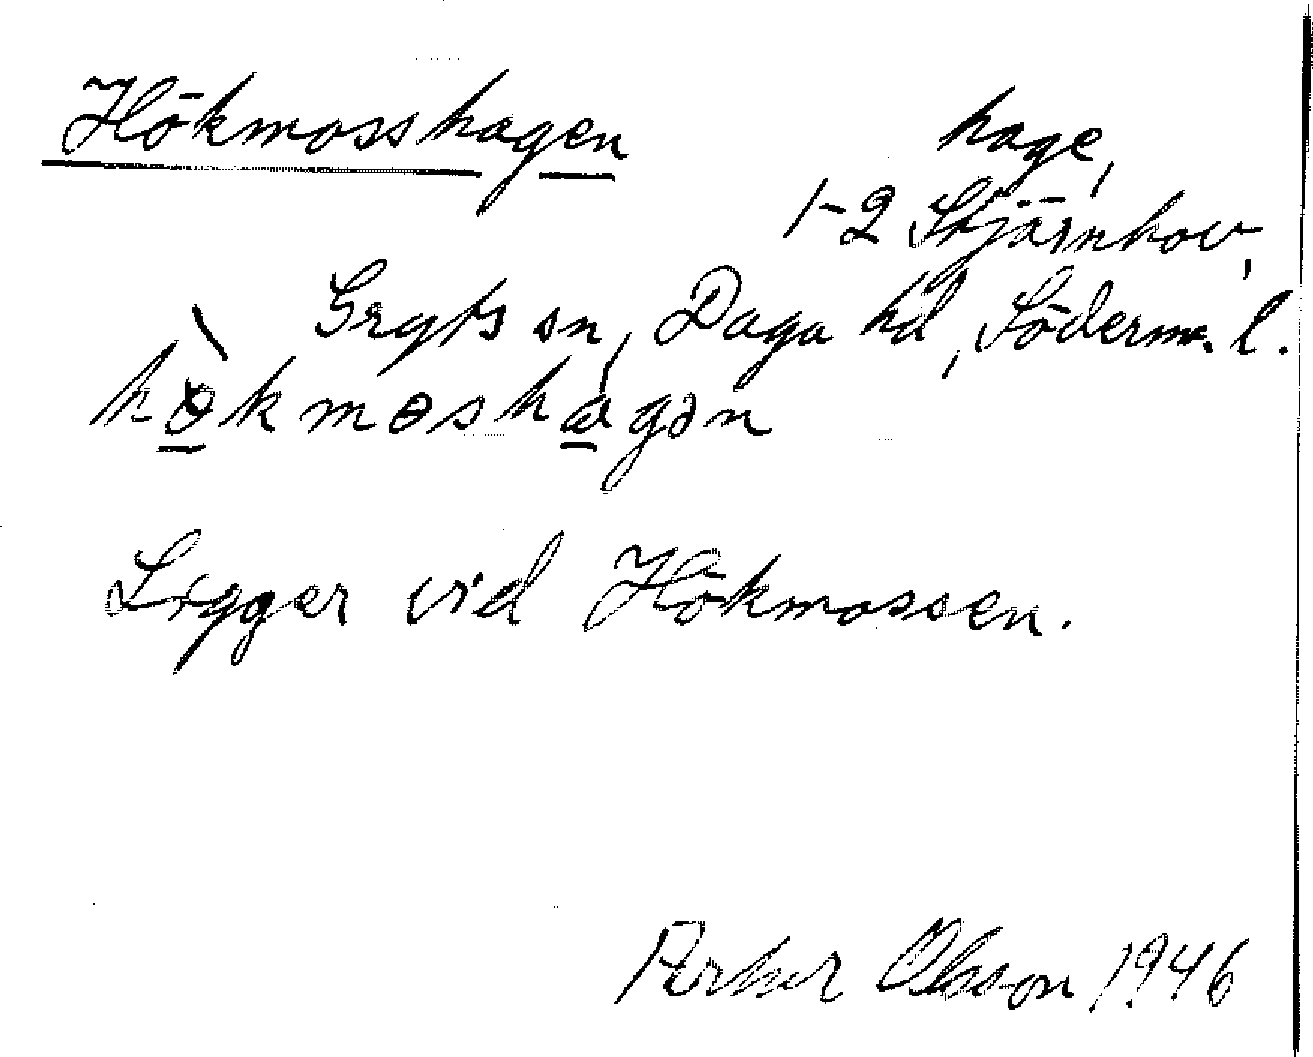 Hökmosshagen
hage,
1-2 Stjärnhov,
Gryts sn, Daga hd, Söderm. l.
hɵ̀kmɵshágən
Ligger vid Hökmossen.
Arthur Olsson 1946